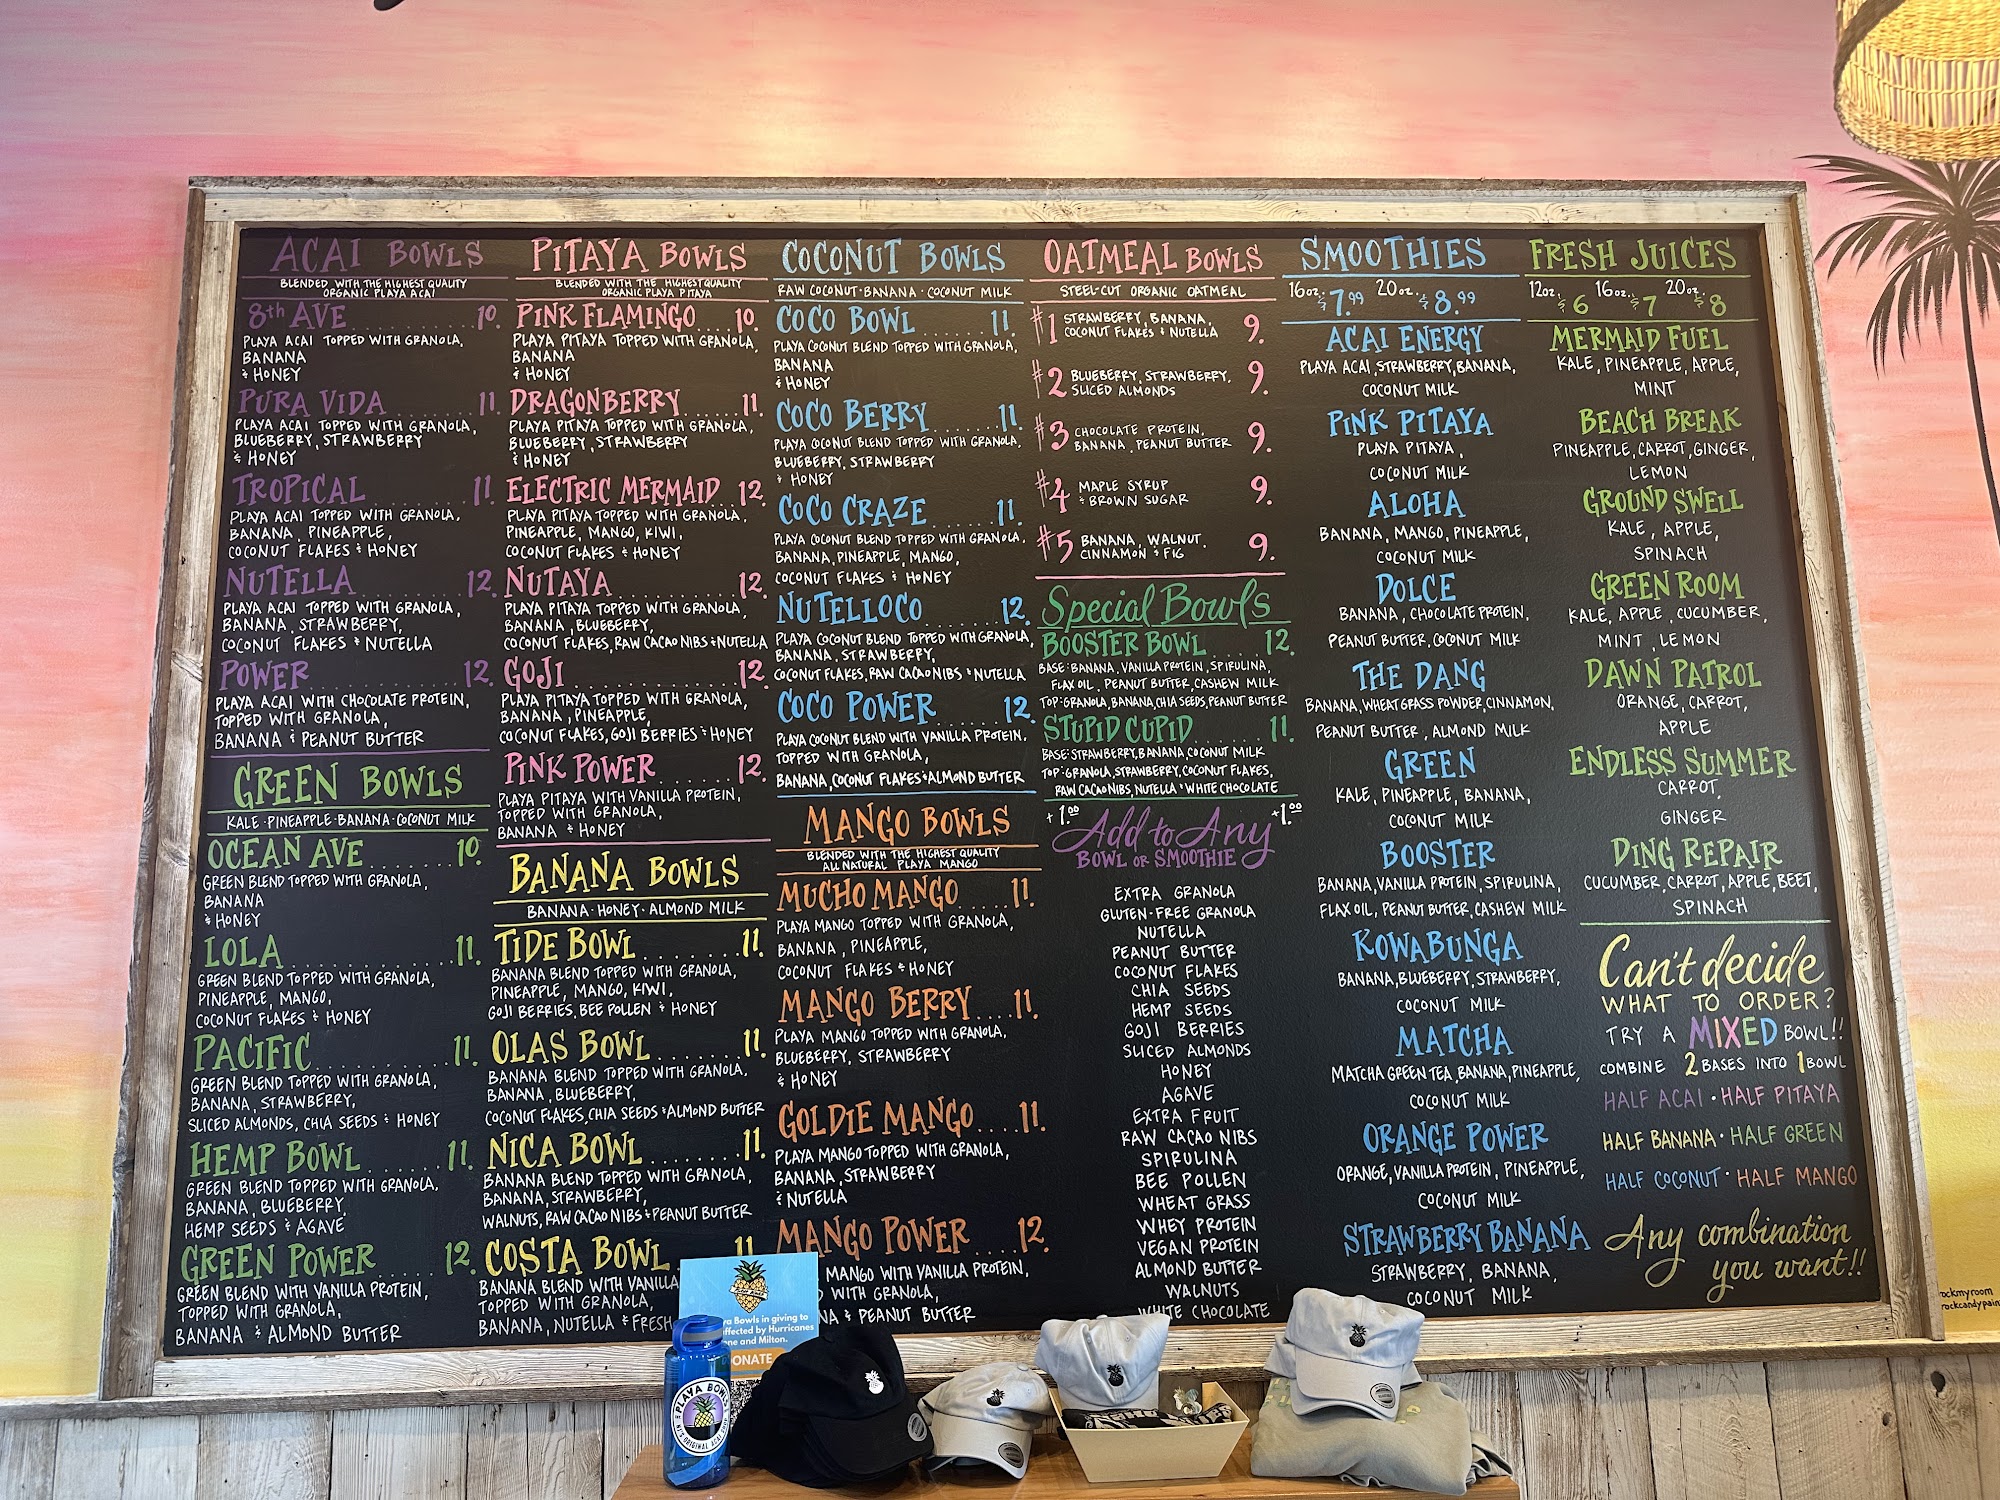 ACAI BOWLS
BLENDED WITH THE HIGHEST QUALITY
ORGANIC PLAYA ACAI
8th AVE 10.
PLAYA ACAI TOPPED WITH GRANOLA,
BANANA
& HONEY
PURA VIDA ........ 11.
PLAYA ACAI TOPPED WITH GRANOLA,
BLUEBERRY, STRAWBERRY
& HONEY
TROPICAL ........ 11.
PLAYA ACAI TOPPED WITH GRANOLA,
BANANA, PINEAPPLE,
COCONUT FLAKES & HONEY
NUTELLA ........ 12.
PLAYA ACAI TOPPED WITH GRANOLA,
BANANA, STRAWBERRY,
COCONUT FLAKES & NUTELLA
POWER ........ 12.
PLAYA ACAI WITH CHOCOLATE PROTEIN,
TOPPED WITH GRANOLA,
BANANA & PEANUT BUTTER
GREEN BOWLS
KALE · PINEAPPLE · BANANA · COCONUT MILK
OCEAN AVE ........ 10.
GREEN BLEND TOPPED WITH GRANOLA,
BANANA
& HONEY
LOLA ........ 11.
GREEN BLEND TOPPED WITH GRANOLA,
PINEAPPLE, MANGO,
COCONUT FLAKES & HONEY
PACIFIC ........ 11.
GREEN BLEND TOPPED WITH GRANOLA,
BANANA, STRAWBERRY,
SLICED ALMONDS, CHIA SEEDS & HONEY
HEMP BOWL ...... 11.
GREEN BLEND TOPPED WITH GRANOLA,
BANANA, BLUEBERRY,
HEMP SEEDS & AGAVE
GREEN POWER .... 12.
GREEN BLEND WITH VANILLA PROTEIN,
TOPPED WITH GRANOLA,
BANANA & ALMOND BUTTER
PITAYA BOWLS
BLENDED WITH THE HIGHEST QUALITY
ORGANIC PLAYA PITAYA
PINK FLAMINGO .... 10.
PLAYA PITAYA TOPPED WITH GRANOLA,
BANANA
& HONEY
DRAGONBERRY ..... 11.
PLAYA PITAYA TOPPED WITH GRANOLA,
BLUEBERRY, STRAWBERRY
& HONEY
ELECTRIC MERMAID 12.
PLAYA PITAYA TOPPED WITH GRANOLA,
PINEAPPLE, MANGO, KIWI,
COCONUT FLAKES & HONEY
NUTAYA ........ 12.
PLAYA PITAYA TOPPED WITH GRANOLA,
BANANA, BLUEBERRY,
COCONUT FLAKES, RAW CACAO NIBS & NUTELLA
GOJI ........ 12.
PLAYA PITAYA TOPPED WITH GRANOLA,
BANANA, PINEAPPLE,
COCONUT FLAKES, GOJI BERRIES & HONEY
PINK POWER ...... 12.
PLAYA PITAYA WITH VANILLA PROTEIN,
TOPPED WITH GRANOLA,
BANANA & HONEY
BANANA BOWLS
BANANA · HONEY · ALMOND MILK
TIDE BOWL ....... 11.
BANANA BLEND TOPPED WITH GRANOLA,
PINEAPPLE, MANGO, KIWI,
GOJI BERRIES, BEE POLLEN & HONEY
OLAS BOWL ....... 11.
BANANA BLEND TOPPED WITH GRANOLA,
BANANA, BLUEBERRY,
COCONUT FLAKES, CHIA SEEDS & ALMOND BUTTER
NICA BOWL ....... 11.
BANANA BLEND TOPPED WITH GRANOLA,
BANANA, STRAWBERRY,
WALNUTS, RAW CACAO NIBS & PEANUT BUTTER
COSTA BOWL 11.
BANANA BLEND WITH VANILLA
TOPPED WITH GRANOLA,
BANANA, NUTELLA & FRESH
COCONUT BOWLS
RAW COCONUT · BANANA · COCONUT MILK
COCO BOWL ...... 11.
PLAYA COCONUT BLEND TOPPED WITH GRANOLA,
BANANA
& HONEY
COCO BERRY ...... 11.
PLAYA COCONUT BLEND TOPPED WITH GRANOLA,
BLUEBERRY, STRAWBERRY
& HONEY
COCO CRAZE ...... 11.
PLAYA COCONUT BLEND TOPPED WITH GRANOLA,
BANANA, PINEAPPLE, MANGO,
COCONUT FLAKES & HONEY
NUTELLOCO ...... 12.
PLAYA COCONUT BLEND TOPPED WITH GRANOLA,
BANANA, STRAWBERRY,
COCONUT FLAKES, RAW CACAO NIBS & NUTELLA
COCO POWER ...... 12.
PLAYA COCONUT BLEND WITH VANILLA PROTEIN,
TOPPED WITH GRANOLA,
BANANA, COCONUT FLAKES & ALMOND BUTTER
MANGO BOWLS
BLENDED WITH THE HIGHEST QUALITY
ALL NATURAL PLAYA MANGO
MUCHO MANGO .... 11.
PLAYA MANGO TOPPED WITH GRANOLA,
BANANA, PINEAPPLE,
COCONUT FLAKES & HONEY
MANGO BERRY .... 11.
PLAYA MANGO TOPPED WITH GRANOLA,
BLUEBERRY, STRAWBERRY
& HONEY
GOLDIE MANGO .... 11.
PLAYA MANGO TOPPED WITH GRANOLA,
BANANA, STRAWBERRY
& NUTELLA
MANGO POWER .... 12.
MANGO WITH VANILLA PROTEIN,
WITH GRANOLA,
& PEANUT BUTTER
OATMEAL BOWLS
STEEL-CUT ORGANIC OATMEAL
#1 STRAWBERRY, BANANA,
COCONUT FLAKES & NUTELLA 9.
#2 BLUEBERRY, STRAWBERRY,
SLICED ALMONDS 9.
#3 CHOCOLATE PROTEIN,
BANANA, PEANUT BUTTER 9.
#4 MAPLE SYRUP
& BROWN SUGAR 9.
#5 BANANA, WALNUT,
CINNAMON & FIG 9.
Special Bowls
BOOSTER BOWL .... 12.
BASE: BANANA, VANILLA PROTEIN, SPIRULINA,
FLAX OIL, PEANUT BUTTER, CASHEW MILK
TOP: GRANOLA, BANANA, CHIA SEEDS, PEANUT BUTTER
STUPID CUPID ..... 11.
BASE: STRAWBERRY, BANANA, COCONUT MILK
TOP: GRANOLA, STRAWBERRY, COCONUT FLAKES,
RAW CACAO NIBS, NUTELLA & WHITE CHOCOLATE
+1.00 Add to Any +1.00
BOWL OR SMOOTHIE
EXTRA GRANOLA
GLUTEN-FREE GRANOLA
NUTELLA
PEANUT BUTTER
COCONUT FLAKES
CHIA SEEDS
HEMP SEEDS
GOJI BERRIES
SLICED ALMONDS
HONEY
AGAVE
EXTRA FRUIT
RAW CACAO NIBS
SPIRULINA
BEE POLLEN
WHEAT GRASS
WHEY PROTEIN
VEGAN PROTEIN
ALMOND BUTTER
WALNUTS
WHITE CHOCOLATE
SMOOTHIES
16oz. $7.99 20oz. $8.99
ACAI ENERGY
PLAYA ACAI, STRAWBERRY, BANANA,
COCONUT MILK
PINK PITAYA
PLAYA PITAYA,
COCONUT MILK
ALOHA
BANANA, MANGO, PINEAPPLE,
COCONUT MILK
DOLCE
BANANA, CHOCOLATE PROTEIN,
PEANUT BUTTER, COCONUT MILK
THE DANG
BANANA, WHEATGRASS POWDER, CINNAMON,
PEANUT BUTTER, ALMOND MILK
GREEN
KALE, PINEAPPLE, BANANA,
COCONUT MILK
BOOSTER
BANANA, VANILLA PROTEIN, SPIRULINA,
FLAX OIL, PEANUT BUTTER, CASHEW MILK
KOWABUNGA
BANANA, BLUEBERRY, STRAWBERRY,
COCONUT MILK
MATCHA
MATCHA GREEN TEA, BANANA, PINEAPPLE,
COCONUT MILK
ORANGE POWER
ORANGE, VANILLA PROTEIN, PINEAPPLE,
COCONUT MILK
STRAWBERRY BANANA
STRAWBERRY, BANANA,
COCONUT MILK
FRESH JUICES
12oz. $6 16oz. $7 20oz. $8
MERMAID FUEL
KALE, PINEAPPLE, APPLE,
MINT
BEACH BREAK
PINEAPPLE, CARROT, GINGER,
LEMON
GROUND SWELL
KALE, APPLE,
SPINACH
GREEN ROOM
KALE, APPLE, CUCUMBER,
MINT, LEMON
DAWN PATROL
ORANGE, CARROT,
APPLE
ENDLESS SUMMER
CARROT,
GINGER
DING REPAIR
CUCUMBER, CARROT, APPLE, BEET,
SPINACH
Can't decide
WHAT TO ORDER?
TRY A MIXED BOWL!!
COMBINE 2 BASES INTO 1 BOWL
HALF ACAI · HALF PITAYA
HALF BANANA · HALF GREEN
HALF COCONUT · HALF MANGO
Any combination
you want!!
ockmyroom
rockcandypain
Bowls in giving to
ffected by Hurricanes
ne and Milton.
DONATE
PLAYA BOWLS